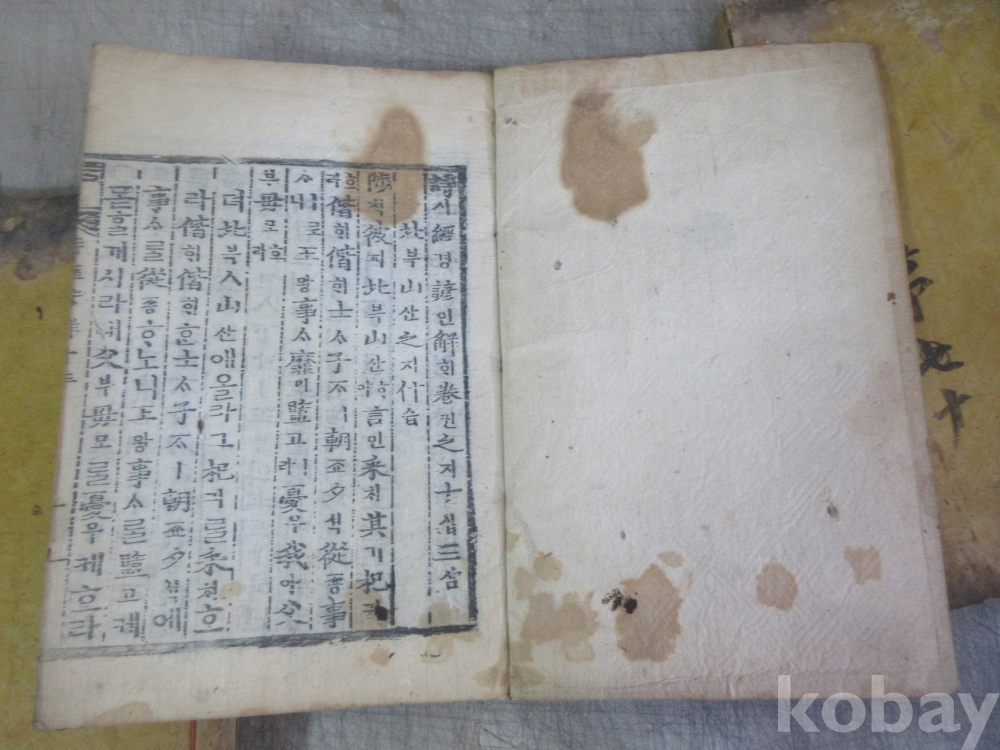 詩시經경諺언解ᄒᆡ卷권之지十십三삼
北븍山산之지什습
陟텩彼피北븍山산ᄒᆞ야言언采ᄎᆡ其기杞긔
호라偕ᄒᆡ偕ᄒᆡ士ᄉᆞ子ᄌᆞㅣ朝죠夕셕從죵事
ᄉᆞㅣ로니王왕事ᄉᆞ靡미盬고ㅣ라憂우我아父
부母모호라
뎌北븍人山산애올라그杞긔를采ᄎᆡ호
라偕ᄒᆡ偕ᄒᆡᄒᆞᆫ士ᄉᆞ子ᄌᆞㅣ朝죠夕셕에
事ᄉᆞ를從죵ᄒᆞ노니王왕事ᄉᆞ를盬고케
몯ᄒᆞᆯ게시라내父부母모를憂우케호라
kobay